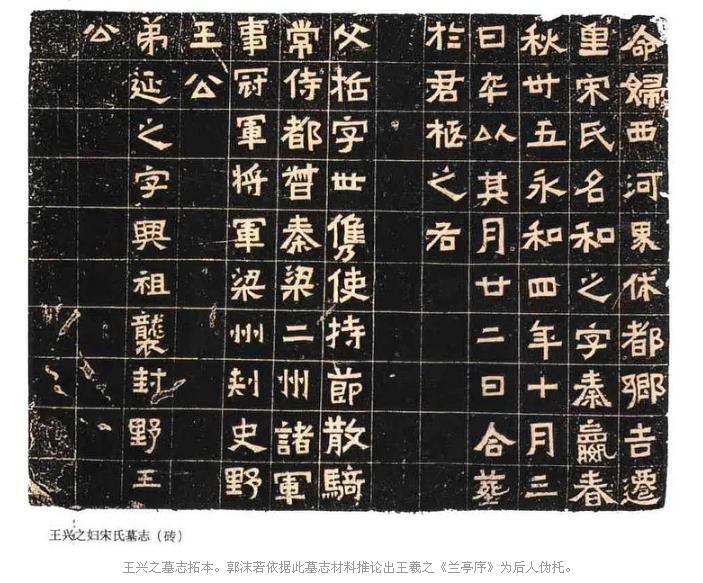 命婦西河界休都鄉吉遷
里宋氏名和之字秦嬴春
秋卅五永和四年十月三
日卒以其月廿二日合葬
於君柩之右
父哲字世儁使持節散騎
常侍都督秦梁二州諸軍
事冠軍將軍梁州刺史野
王公
弟延之字興祖襲封野王
公
王兴之妇宋氏墓志（砖）
王兴之墓志拓本。郭沫若依据此墓志材料推论出王羲之《兰亭序》为后人伪托。